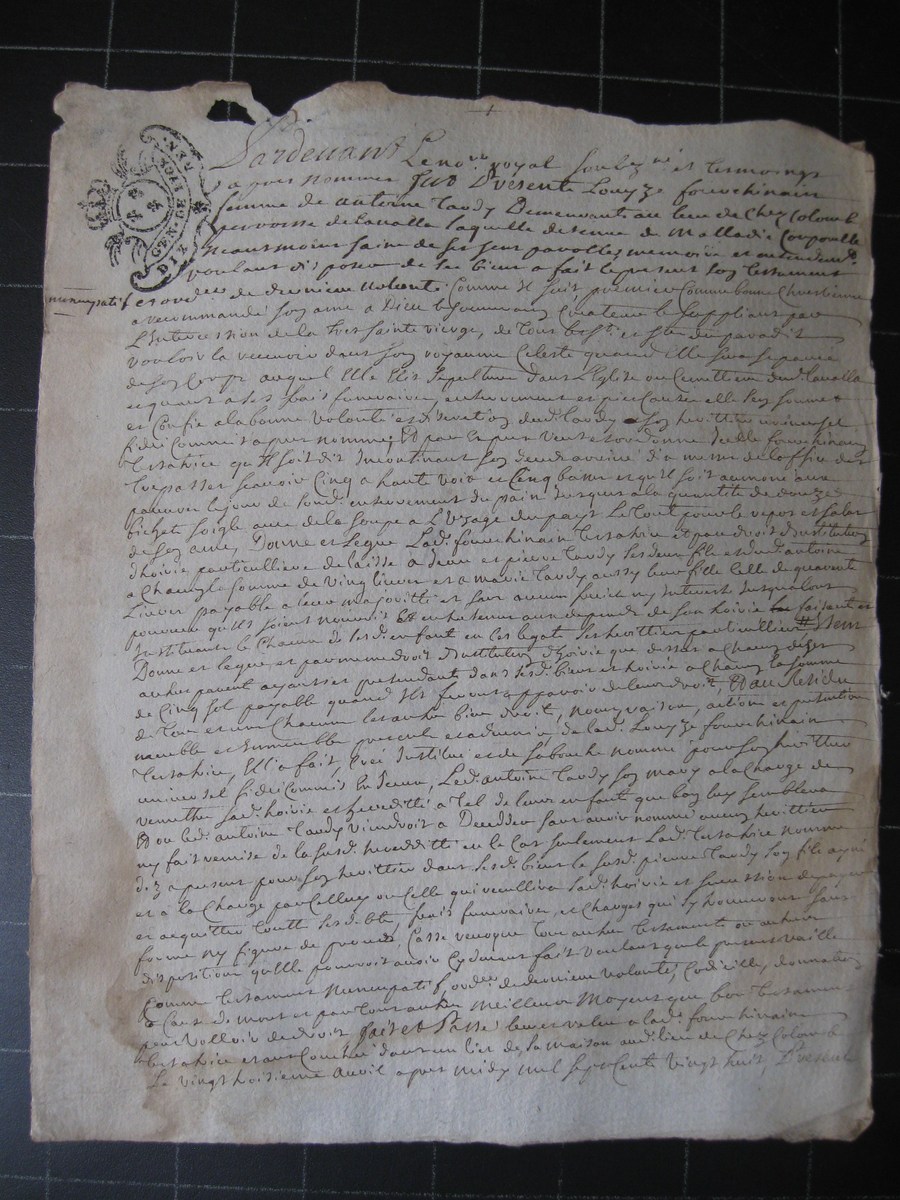 GEN. DE LYON.
DIX DEN.
Pardevant Le no.re royal soubz.né et tesmoings
apres nommes fut Présente Louyze fourchinain
femme de antoine tardy Demeurant au lieu de Chez Colomb
perroisse de Lavalla laquelle detenue de Malladie Corporelle
neausmoins saine de ses sens parolles memoire et entendem.t
voulant disposer de ses biens a fait le present son testament
nuncupatif
et ord.ce de derniere volonté Comme s'ensuit premier Comme bonne Chrestienne
a recommandé son ame a Dieu le souverain Createur le suppliant par
L'Intercession de la tres sainte vierge, de tous les s.ts et s.tes du paradis
vouloir la recevoir dans son royaume Celeste quand elle sera separée
de son Corps auquel elle Elit sepulture dans L'Eglise ou Cimettiere dud. Lavalla
et quant a ses frais funeraires, enterrement et pies Causes elle s'en soumet
et Confie a la bonne volonté et discretion dud. tardy son heritier universel
fidei Commis apres nommé, Et par ce que veut et ordonne Icelle fourchinain
testatrice qu'Il soit dit Incontinant son deceds arrivé de messes de L'office des
trepasses scavoir Cinq a haute voix et Cinq basses et qu'il soit aumoné aux
pauvres le jour de sond. enterrement du pain Jusques a la quantité de douze
bichets soigle avec de la soupe a L'Uzage du pays Le tout pour le repos et salut
de son ame, Donne et Legue Lad. fourchinain testatrice et par droit d'Institution
d'hoirie particulliere delaisse a Jean et pierre tardy ses deux fils et dud. antoine
a Chacun la somme de vingt livres et a marie tardy aussy leur fille Celle de quarante
Livres payable a leur majoritté et sans aucun Interest Jusqualors
pourveu qu'ils soient nourris Et entretenus aux depends de son hoirie faisant et
Instituant le Chacun de sesd. enfants en Ces legats ses heritiers particulliers # Item
Donne et Legue et par meme droit d'Institution d'hoirie que dessus a Chacun de ses
autres parents ayants et pretendants droit dans sesd. biens et hoirie a Chacun la somme
de Cinq sol payable quand Ils feront apparoir de leur droit, Et au Residu
de tous et un Chacuns les autres biens droits, noms, raisons, actions et pretentions
meubles et Immeubles presents et advenir de lad. Louyze fourchinain
testatrice, Elle a fait, Créé Institué et de sa bouche nommé pour son heritier
universel fidei Commis Led. antoine tardy son mary a la Charge de
remettre sad. hoirie et heredité a tel de leurs enfants que bon luy semblera
Et ou led. antoine tardy viendroit a Decedder sans avoir nommé aucun heritier
ny fait remise de la susd. heredité en Ce Cas seulement Lad. testatrice nomme
dez a present pour son heritier dans sesd. biens le susd. pierre tardy son fils ayné
et a la Charge par Celluy ou Celle qui recullira sad. hoirie et succession de payer
et acquitter toutes ses debtes, frais funeraires, et Charges qui s'y trouveront sans
forme ny figure de procès, Casse revoque tous autres testaments ou autres
dispositions qu'elle pourroit avoir Cy devant fait voulant que le present vaille
Comme testament Nuncupatif, ord.ce de derniere volonté, Codicille, donnation
a Cause de mort et par tous autres meilleurs Moyens que bon testament
peut Valloir de droit, fait et Passé leu et releu a lad. fourchinain
testatrice estant Couchée dans un lict de sa maison aud. lieu de Chez Colomb
Le vingt troisieme avril apres midy mil sept Cents Vingt huit, Présents